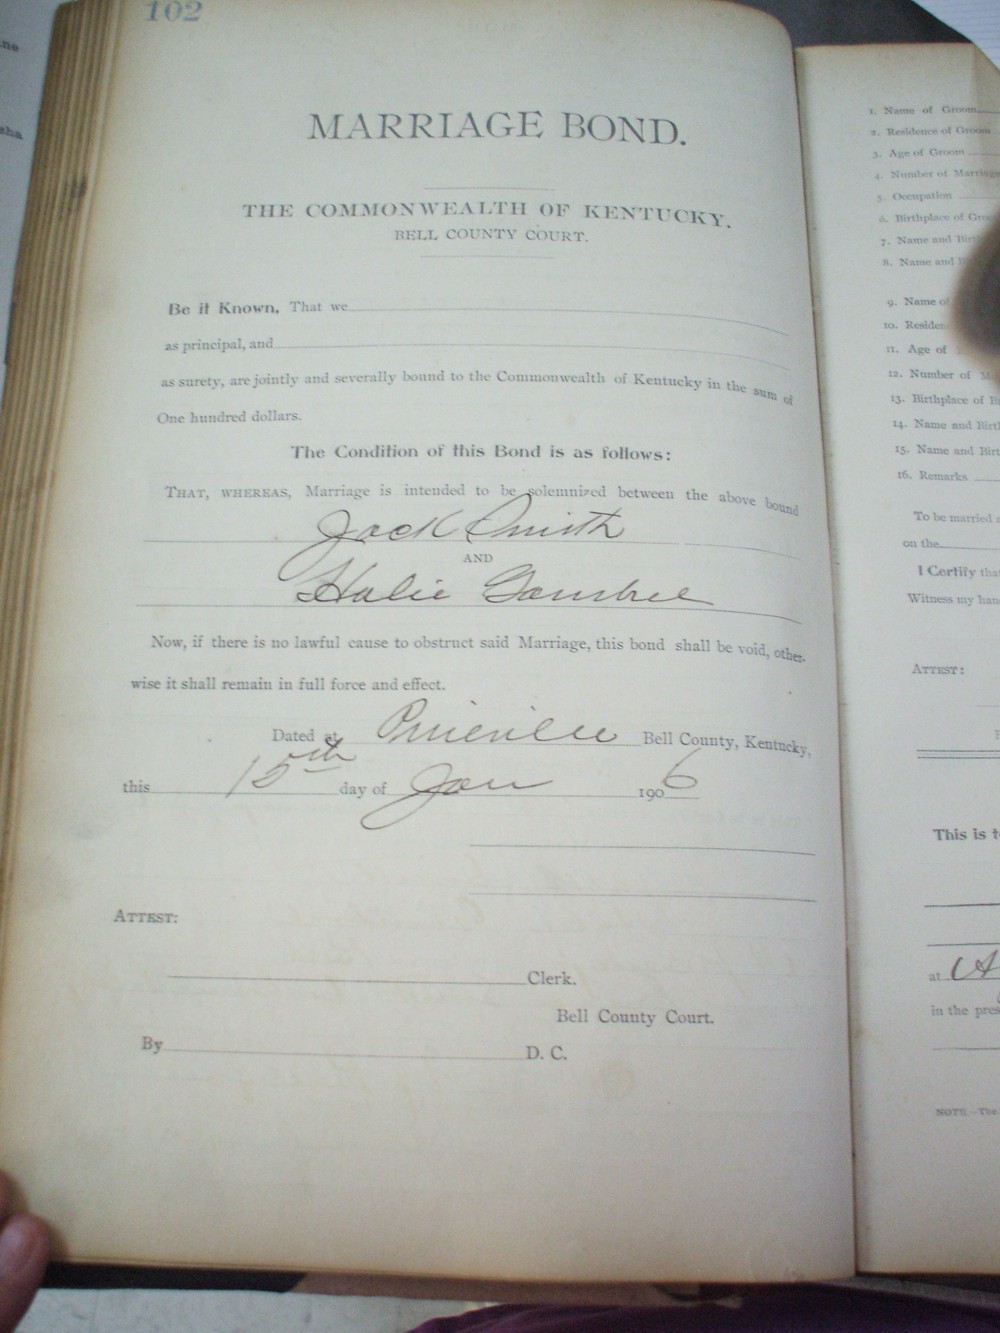 102
MARRIAGE BOND.
THE COMMONWEALTH OF KENTUCKY.
BELL COUNTY COURT.
Be it Known, That we
as principal, and
as surety, are jointly and severally bound to the Commonwealth of Kentucky in the sum of
One hundred dollars.
The Condition of this Bond is as follows:
THAT, WHEREAS, Marriage is intended to be solemnized between the above bound
Jack Smith
AND
Now, if there is no lawful cause to obstruct said Marriage, this bond shall be void, other-
wise it shall remain in full force and effect.
Dated at Pineville Bell County, Kentucky,
this 15th day of Jan 1906
ATTEST:
Clerk.
Bell County Court.
By D. C.
1. Name of Groom
2. Residence of Groom
3. Age of Groom
4. Number of Marriage
5. Occupation
6. Birthplace of
7. Name and
8. Name and
9. Name of
10.
11. Age of
12. Number of
13. Birthplace of
14. Name and
15. Name and
16. Remarks
To be married
on the
I Certify
Witness my
ATTEST:
This is
at
in the
NOTE.—The